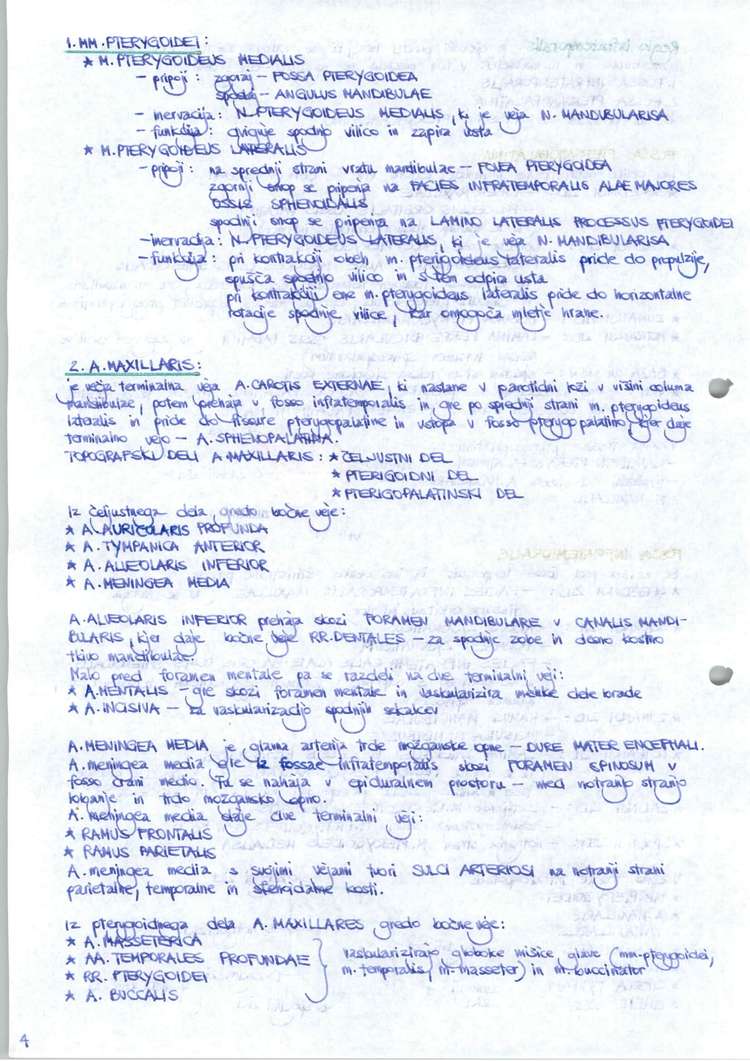 1. MM. PTERYGOIDEI:
* M. PTERYGOIDEUS MEDIALIS
- pripoji: zgoraj - FOSSA PTERYGOIDEA
spodaj - ANGULUS MANDIBULAE
- inervacija: N. PTERYGOIDEUS MEDIALIS, ki je veja N. MANDUBULARISA
- funkcija: dviguje spodnjo vilico in zapira usta
* M. PTERYGOIDEUS LATERALIS
- pripoji: na sprednji strani vratu mandibulae - FOVEA PTERYGOIDEA
zgornji snop se pripenja na FACIES INFRATEMPORALIS ALAE MAJORES
OSSIS SPHENOIDALIS
spodnji snop se pripenja na LAMINO LATERALIS PROCESSUS PTERYGOIDEI
- inervacija: N. PTERYGOIDEUS LATERALIS, ki je veja N. MANDIBULARISA
- funkcija: pri kontrakciji obeh m. pterigoideus lateralis pride do propulzije,
spušča spodnjo vilico in s tem odpira usta
pri kontrakciji ene m. pterygoideus lateralis pride do horizontalne
rotacije spodnje vilice, kar omogoča mletje hrane.
2. A. MAXILLARIS:
je večja terminalna veja A. CAROTIS EXTERNAE, ki nastane v parotidni loži v višini columa
mandibulae, potem prehaja v fosso infratemporalis in gre po sprednji strani m. pterygoideus
lateralis in pride do fissure pterygopalatine in vstopa v fosso pterygo palatino, kjer daje
terminalno vejo - A. SPHENOPALATINA.
TOPOGRAFSKI DELI A MAXILLARIS: * ČELJUSTNI DEL
* PTERIGOIDNI DEL
* PTERIGOPALATINSKI DEL
Iz čeljustnega dela gredo bočne veje:
* A. AURICOLARIS PROFUNDA
* A. TYMPANICA ANTERIOR
* A. ALVEOLARIS INFERIOR
* A. MENINGEA MEDIA
A. ALVEOLARIS INFERIOR prehaja skozi FORAMEN MANDIBULARE v CANALIS MANDI-
BULARIS, kjer daje bočne veje RR. DENTALES - za spodnje zobe in desno kostno
tkivo mandibulae.
Malo pred foramen mentale pa se razdeli na dve terminalni veji:
* A. MENTALIS - gre skozi foramen mentale in vaskularizira mehke dele brade
* A. INCISIVA - za vaskularizacijo spodnjih sekalcev
A. MENINGEA MEDIA je glavna arterija trde možganske opne - DURE MATER ENCEPHALI.
A. meningea media gre iz fossae infratemporalis skozi FORAMEN SPINOSUM v
fosso crani medio. Tu se nahaja v epiduralnem prostoru - med notranjo stranjo
lobanje in trdo možgansko opno.
A. meningea media daje dve terminalni veji:
* RAMUS FRONTALIS
* RAMUS PARIETALIS
A. meningea media s svojimi vejami tvori SULCI ARTERIOSI na notranji strani
parietalne, temporalne in sfenoidalne kosti.
Iz pterygoidnega dela A. MAXILLARES gredo bočne veje:
* A. MASSETERICA
* AA. TEMPORALES PROFUNDAE
* RR. PTERYGOIDEI
* A. BUCCALIS
vaskularizirajo globoke mišice glave (mm. pterygoidei,
m. temporalis, m. masseter) in m. buccinator
4